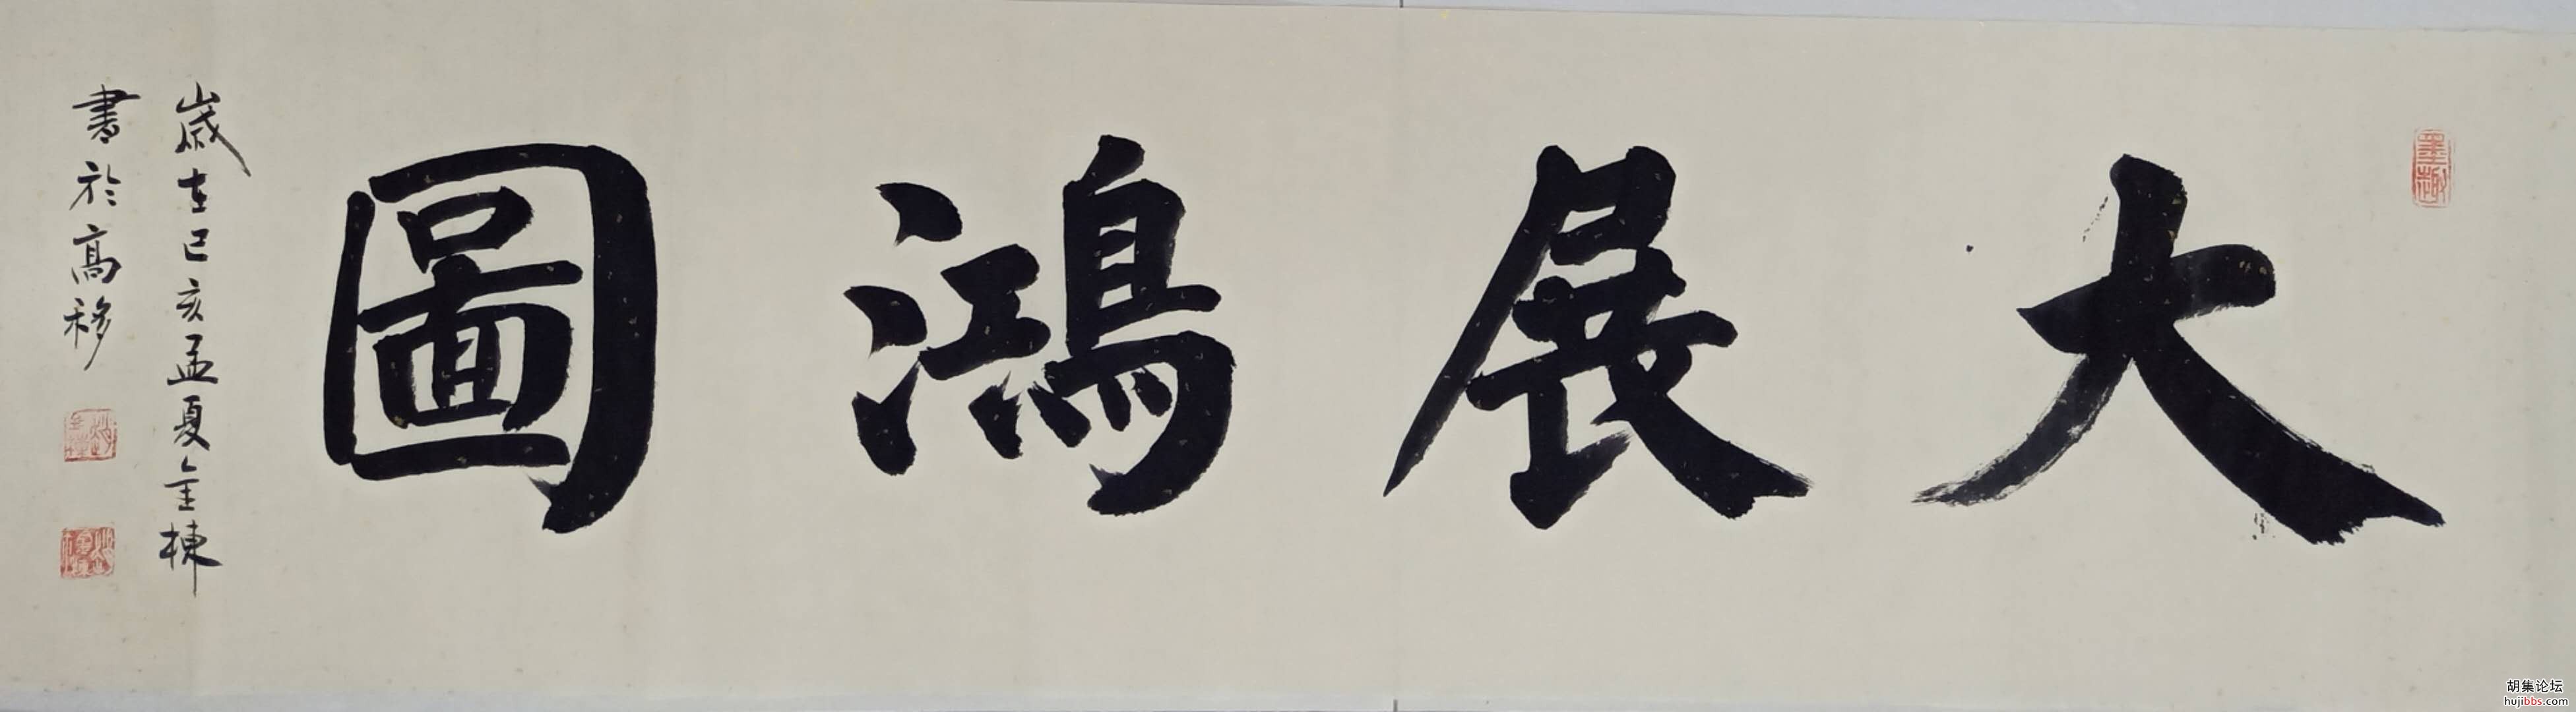 大展鴻圖
歲在己亥孟夏金棟
書於高移
墨趣
胡集论坛
hujibbs.com